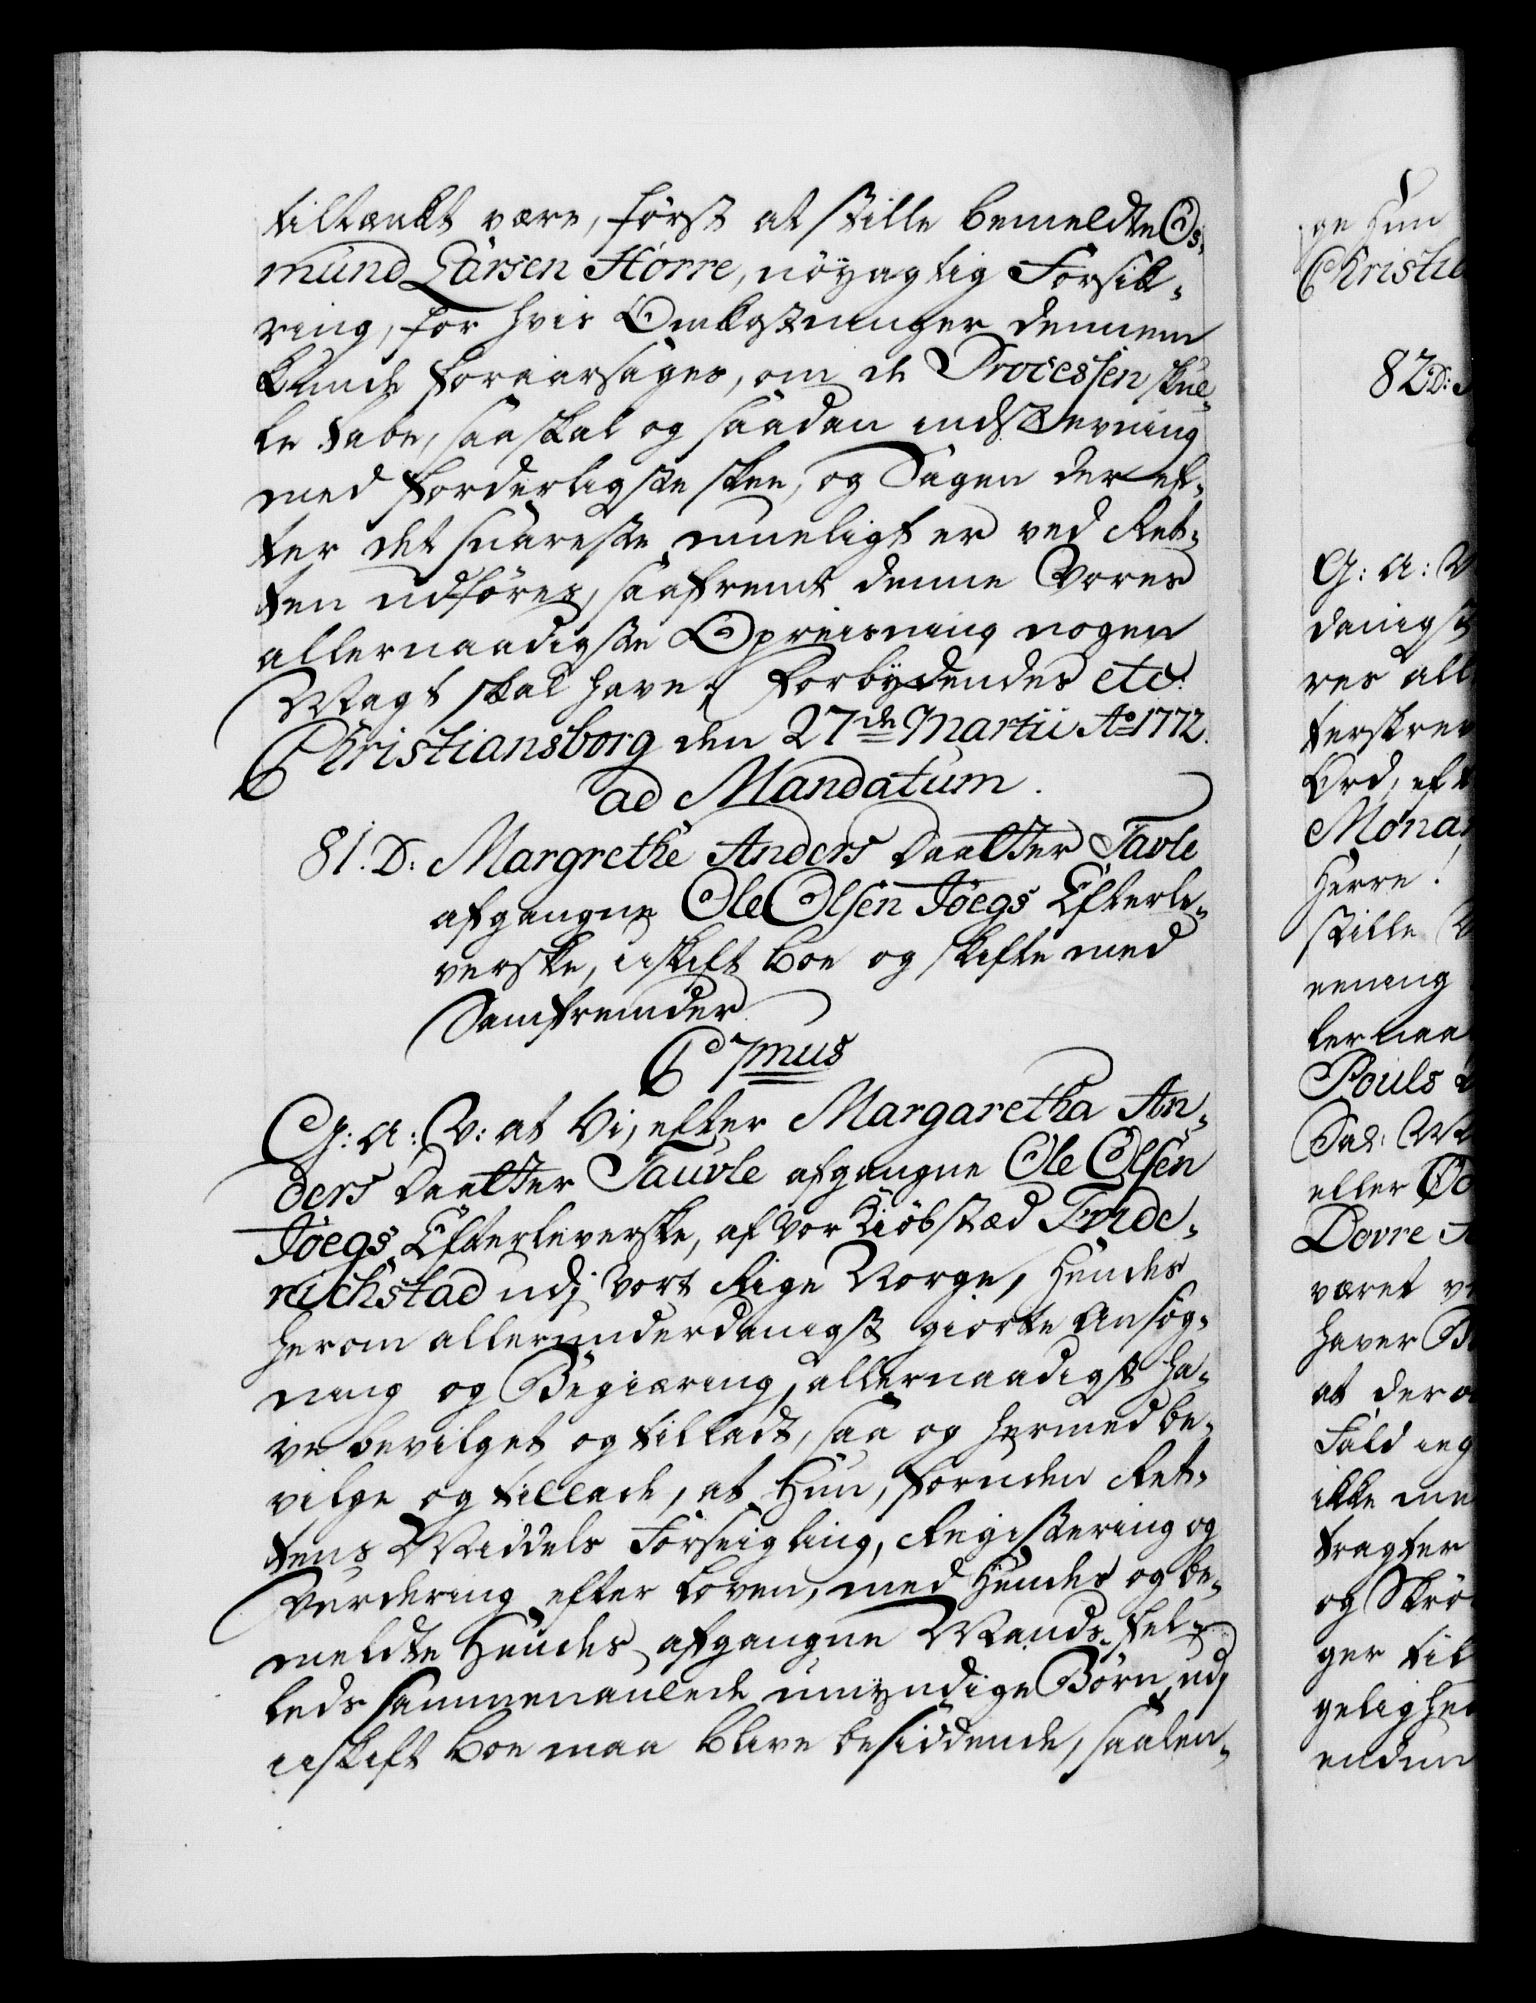 tiltænkt være, først at stille bemeldte Os-
mund Larsen Hørre, nöyagtig Forsik-
ring, for hvis Omkostninger dennem
kunde foraarsages, om de Processen skul-
le tabe, saa skal og saadan indstevning
med forderligste skee, og Sagen der ef-
ter det snareste mueligt er ved Ret-
ten udföres, saafremt denne Vores
allernaadigste Opreisning nogen
Magt skal have; Forbydendes etc:
Christiansborg den 27de Martii Ao 1772.
ad Mandatum.
81. D: Margrethe Anders Daatter Tavle
afgangne Ole Olsen Föegs Efterle-
verske, uskift Boe og skifte med
Samfrender
C 7mus
G: A: V: at Vi, efter Margaretha An-
ders Daatter Tauvle afgangne Ole Olsen
Föegs Efterleverske, af vor Kiöbstæd Fride-
richstad udj vort Rige Norge, Hendes
herom allerunderdanigst giorte Ansög-
ning og Begiæring, allernaadigst ha-
ve bevilget og tilladt, saa og hermed be-
vilge og tillade, at Hun, foruden Ret-
tens Middels Forseigling, Registering og
Vurdering efter Loven, med Hendes og be-
meldte Hendes afgangne Mands fel-
leds sammenavlede umyndige Börn, udj
uskift Boe maa blive besiddende, saalen-
ge Hun
Christia
82. D:
G: A: V
danigst
res all
terskrev
Ord, eft
Monar
Herre!
stille V
eening
lernaa
Pouls
Sal: M
eller
Dovre
været
haver
at der
Fald ing
ikke me
fragter
og Skrö
ger til
gelighed
endnu